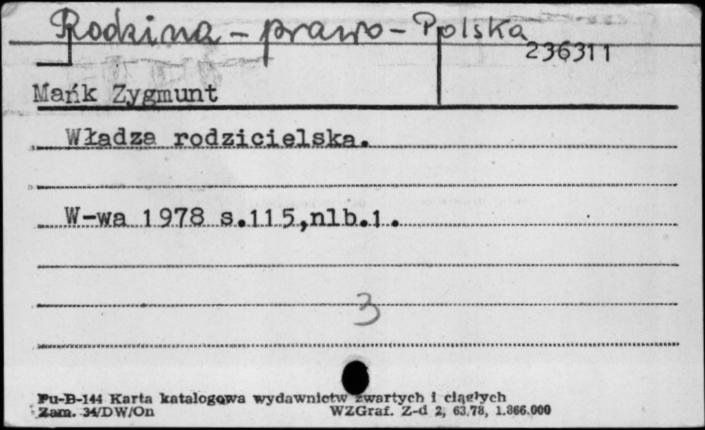 Rodzina - prawo - Polska
236311
Mańk Zygmunt
Władza rodzicielska.
W-wa 1978 s.115,nlb.1.
3
Pu-B-144 Karta katalogowa wydawnictw zwartych i ciągłych
Zam. 34/DW/On WZGraf. Z-d 2, 63,78, 1.866.000